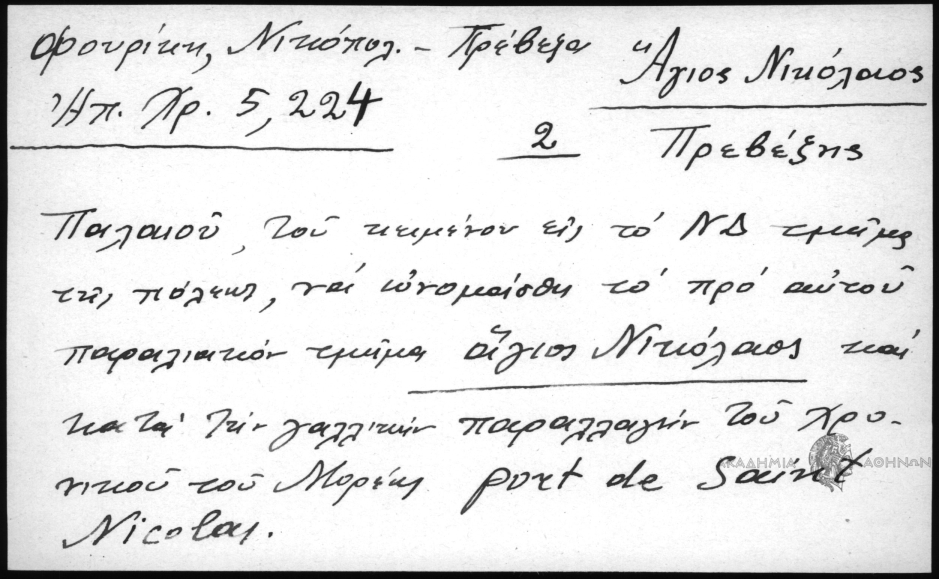 Φουρίκη, Νικόπολ. – Πρέβεζα
Ἠπ. Χρ. 5, 224
Ἅγιος Νικόλαος
2
Πρεβέζης
Παλαιοῦ, τοῦ κειμένου εἰς τό ΝΔ τμῆμα
τῆς πόλεως, καί ὠνομάσθη τό πρό αὐτοῦ
παραλιακόν τμῆμα ἅγιος Νικόλαος καί
κατά τήν γαλλικήν παραλλαγήν τοῦ Χρο-
νικοῦ τοῦ Μορέως port de Saint
Nicolas.
ΑΚΑΔΗΜΙΑ ΑΘΗΝΩΝ